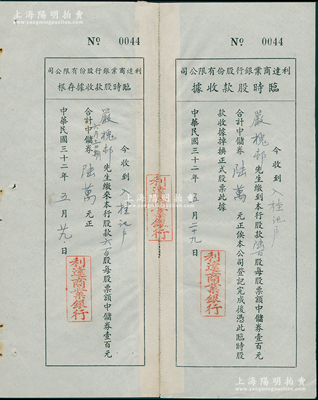 上海陽明拍賣
www.ymauction.com
No 0044
利達商業銀行股份有限公司
臨時股款收據
今收到
嚴槐邨 先生繳到本行股款陸百股每股票額中儲券壹百元
合計中儲券 陸萬 元正俟本公司登記完成後憑此臨時股
款收據掉換正式股票此據
中華民國三十二年 五 月 二十九
利達商業銀行
利達商業銀行
No 0044
利達商業銀行股份有限公司
臨時股款收據存根
今收到
嚴槐邨 先生繳來本行股款六百股每股票額中儲券壹百元
合計中儲券 陸萬 元正
中華民國三十二年 五 月 廿九 日
利達商業銀行